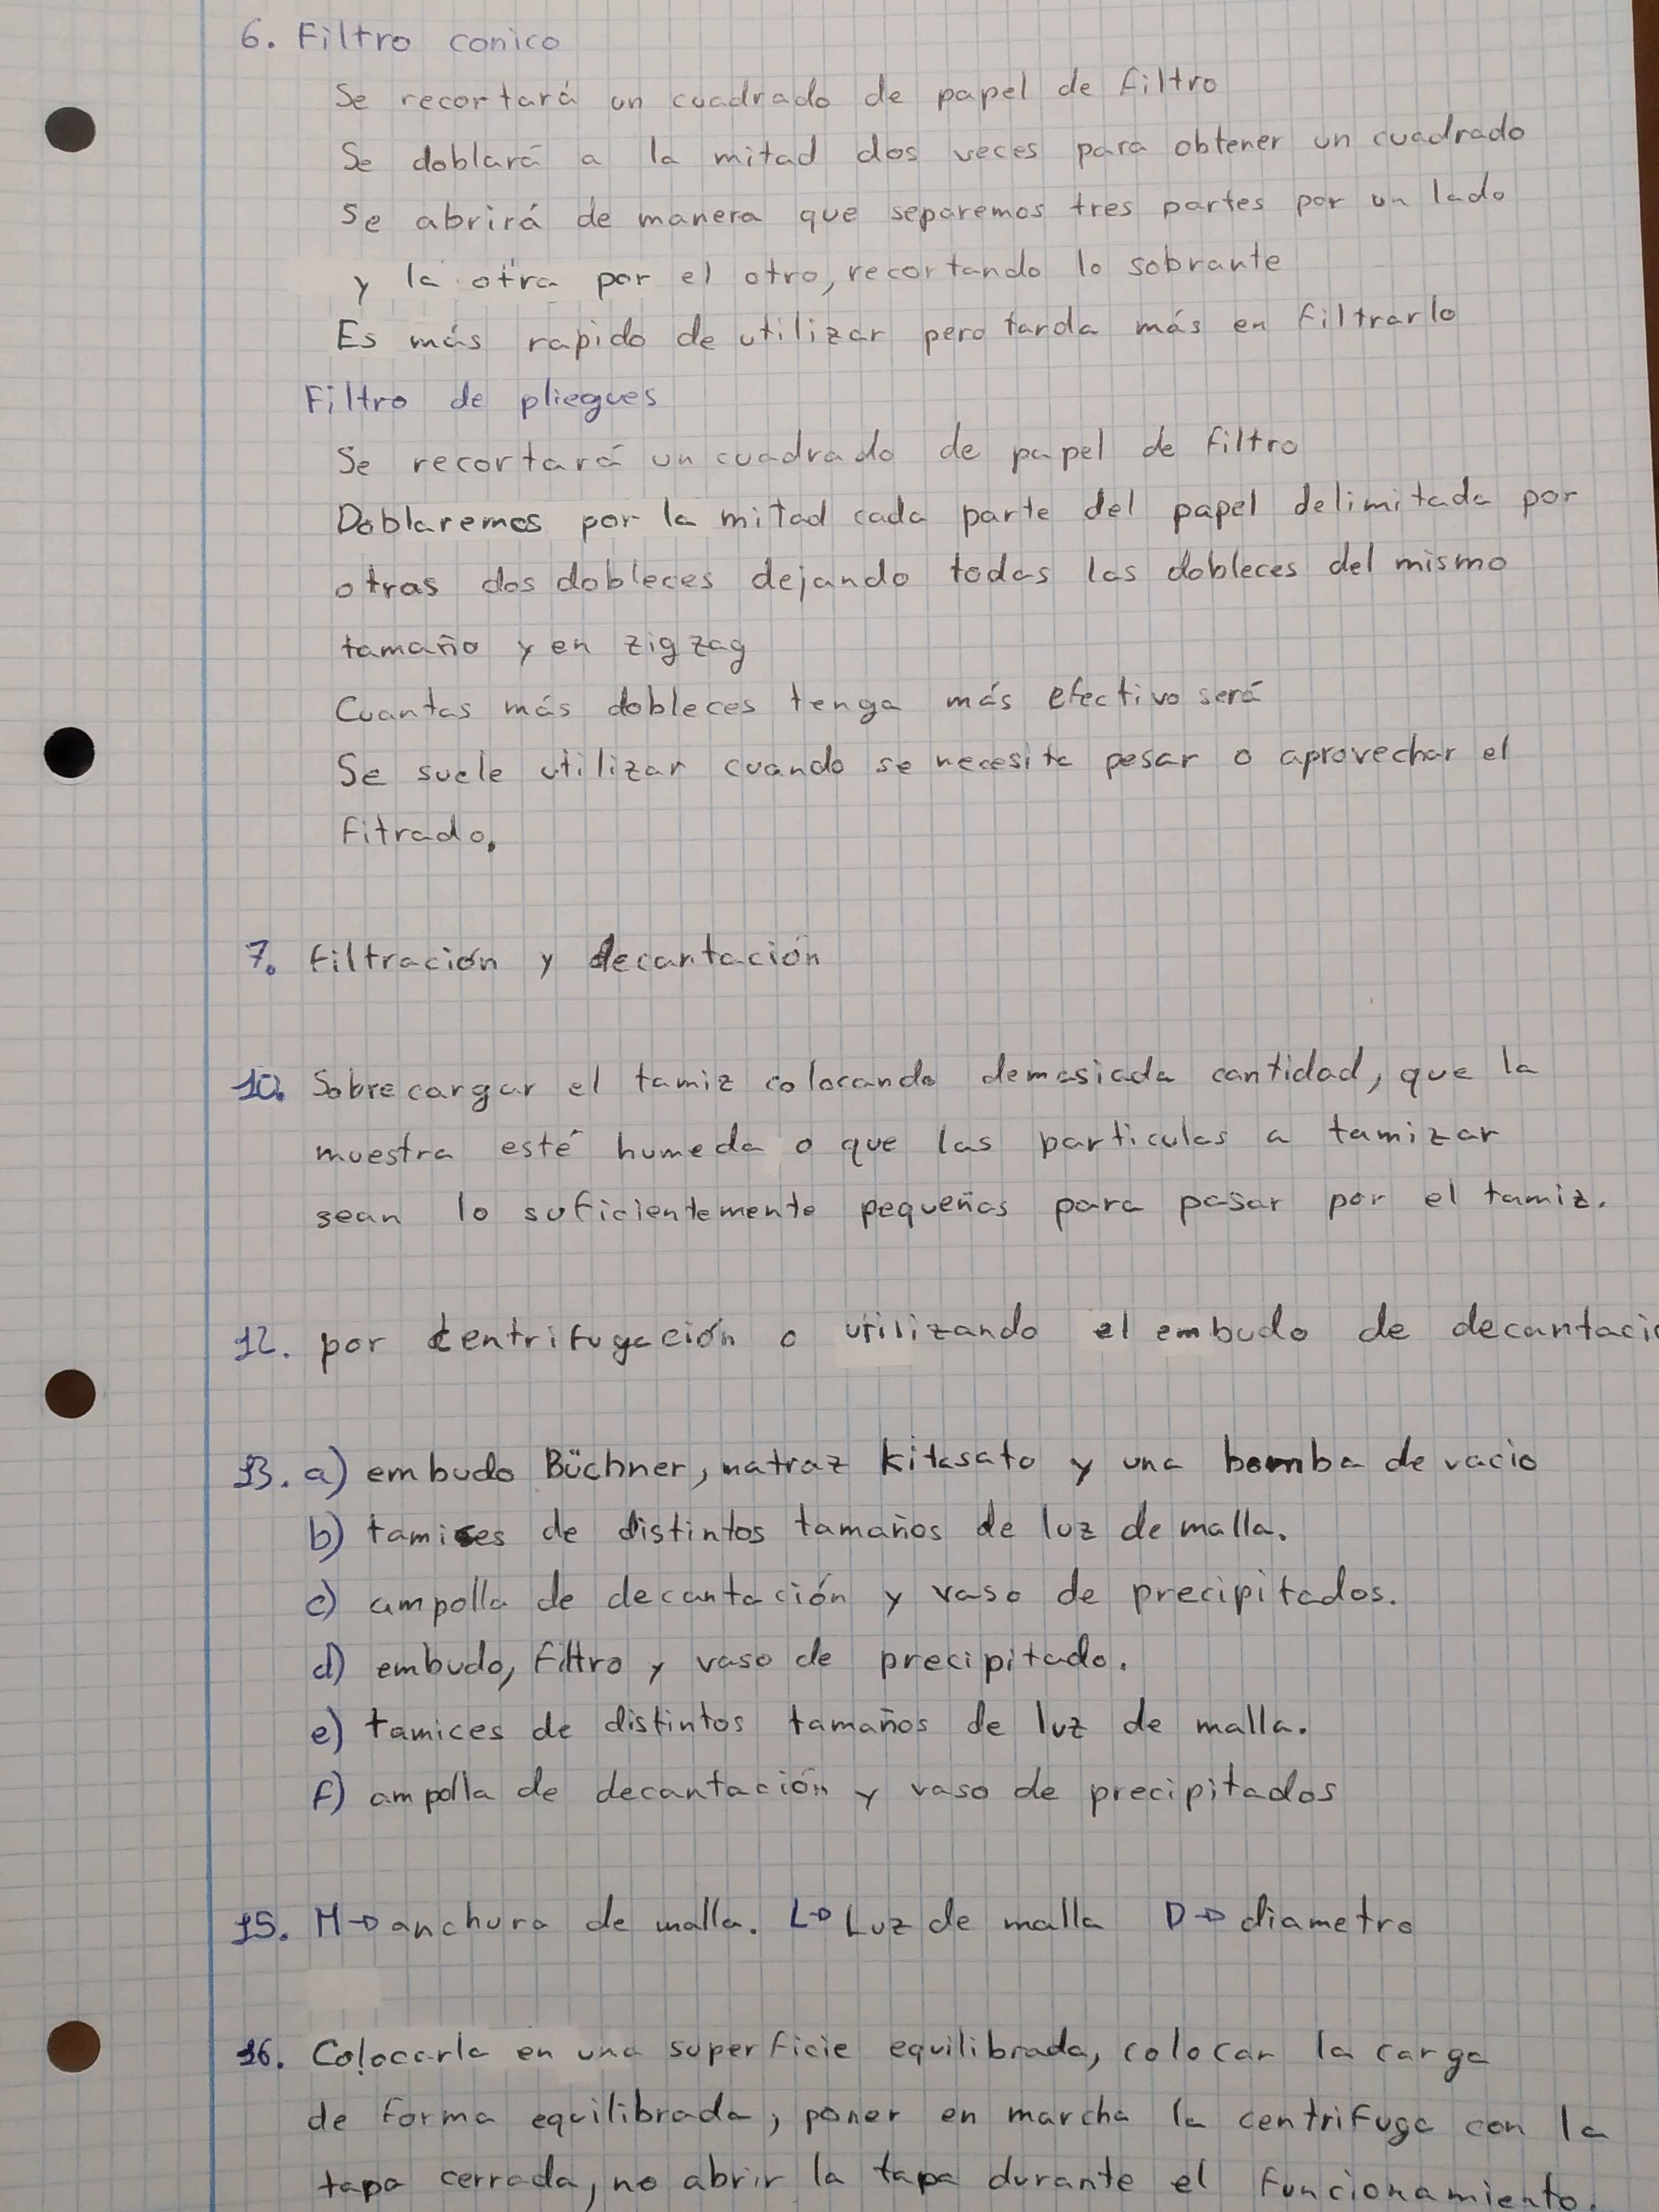 6. Filtro conico
Se recortará un cuadrado de papel de filtro
Se doblará a la mitad dos veces para obtener un cuadrado
Se abrirá de manera que separemos tres partes por un lado
y la otra por el otro, recortando lo sobrante
Es más rapido de utilizar pero tarda más en filtrarlo
Filtro de pliegues
Se recortará un cuadrado de papel de filtro
Doblaremos por la mitad cada parte del papel delimitada por
otras dos dobleces dejando todas las dobleces del mismo
tamaño y en zig zag
Cuantas más dobleces tenga más efectivo será
Se suele utilizar cuando se necesita pesar o aprovechar el
fitrado.
7. filtración y decantación
10. Sobrecargar el tamiz colocando demasiada cantidad, que la
muestra esté humeda o que las particulas a tamizar
sean lo suficientemente pequeñas para pasar por el tamiz.
12. por centrifugación o utilizando el embudo de decantació
13. a) embudo Büchner, matraz kitasato y una bomba de vacio
b) tamices de distintos tamaños de luz de malla.
c) ampolla de decantación y vaso de precipitados.
d) embudo, filtro y vaso de precipitado.
e) tamices de distintos tamaños de luz de malla.
f) ampolla de decantación y vaso de precipitados
15. M→anchura de malla. L→Luz de malla D→diametro
16. Colocarla en una superficie equilibrada, colocar la carga
de forma equilibrada, poner en marcha la centrifuga con la
tapa cerrada, no abrir la tapa durante el funcionamiento.